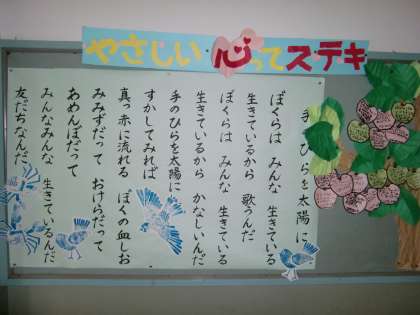 やさしい心ってステキ
手のひらを太陽に
ぼくらは みんな 生きている
生きているから 歌うんだ
ぼくらは みんな 生きている
生きているから かなしいんだ
手のひらを太陽に
すかしてみれば
真っ赤に流れる ぼくの血しお
みみずだって おけらだって
あめんぼだって
みんなみんな 生きているんだ
友だちなんだ